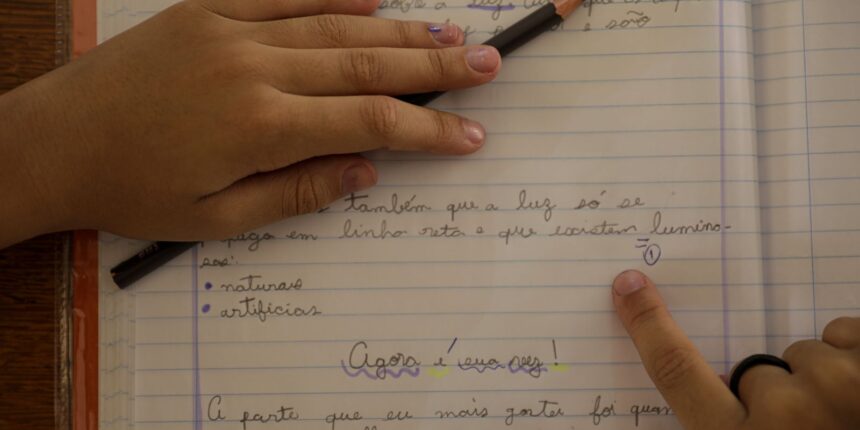 sobre a luz
e são
também que a luz só se
em linha reta e que existem lumino-
sos:
naturais
artificias
①
Agora é sua vez!
A parte que eu mais gostei foi quan